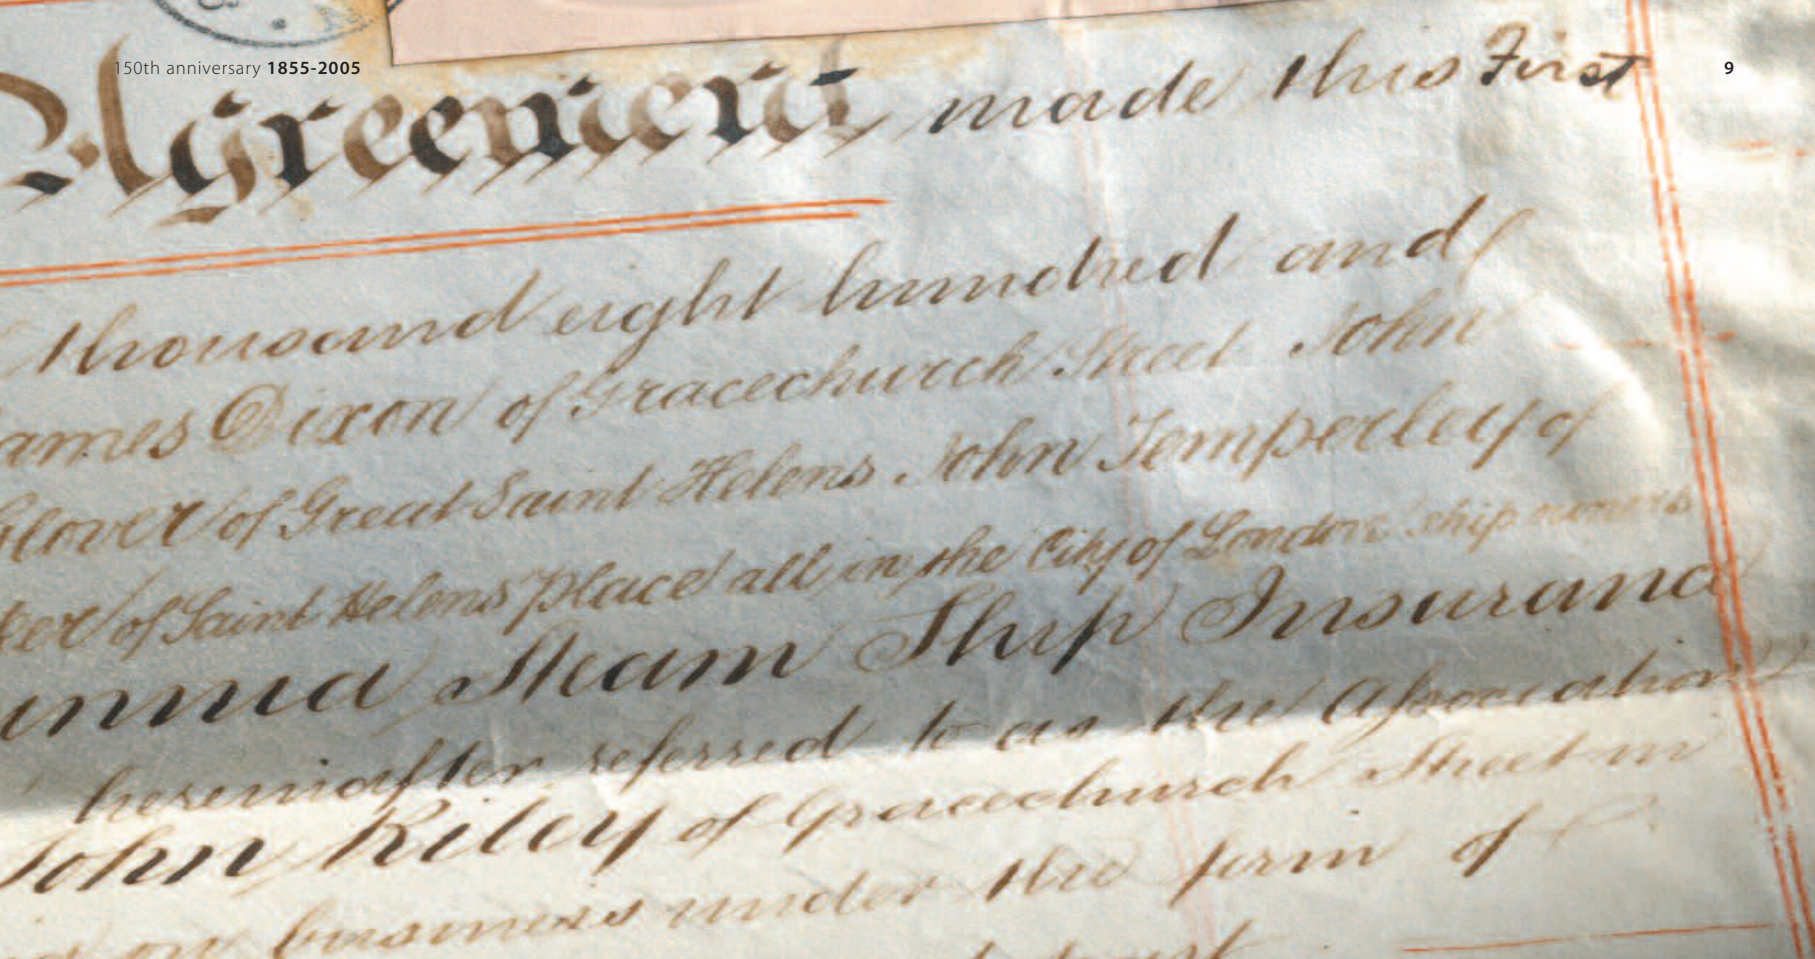 150th anniversary 1855-2005
9
Agreement made this First
thousand eight hundred and
ames Dixon of Gracechurch Street John
Glover of Great Saint Helens John Temperley of
ker of Saint Helens Place all in the City of London Ship owners
annia Steam Ship Insurance
hereinafter referred to as the Association
John Riley of Gracechurch Street in
on business under the firm of